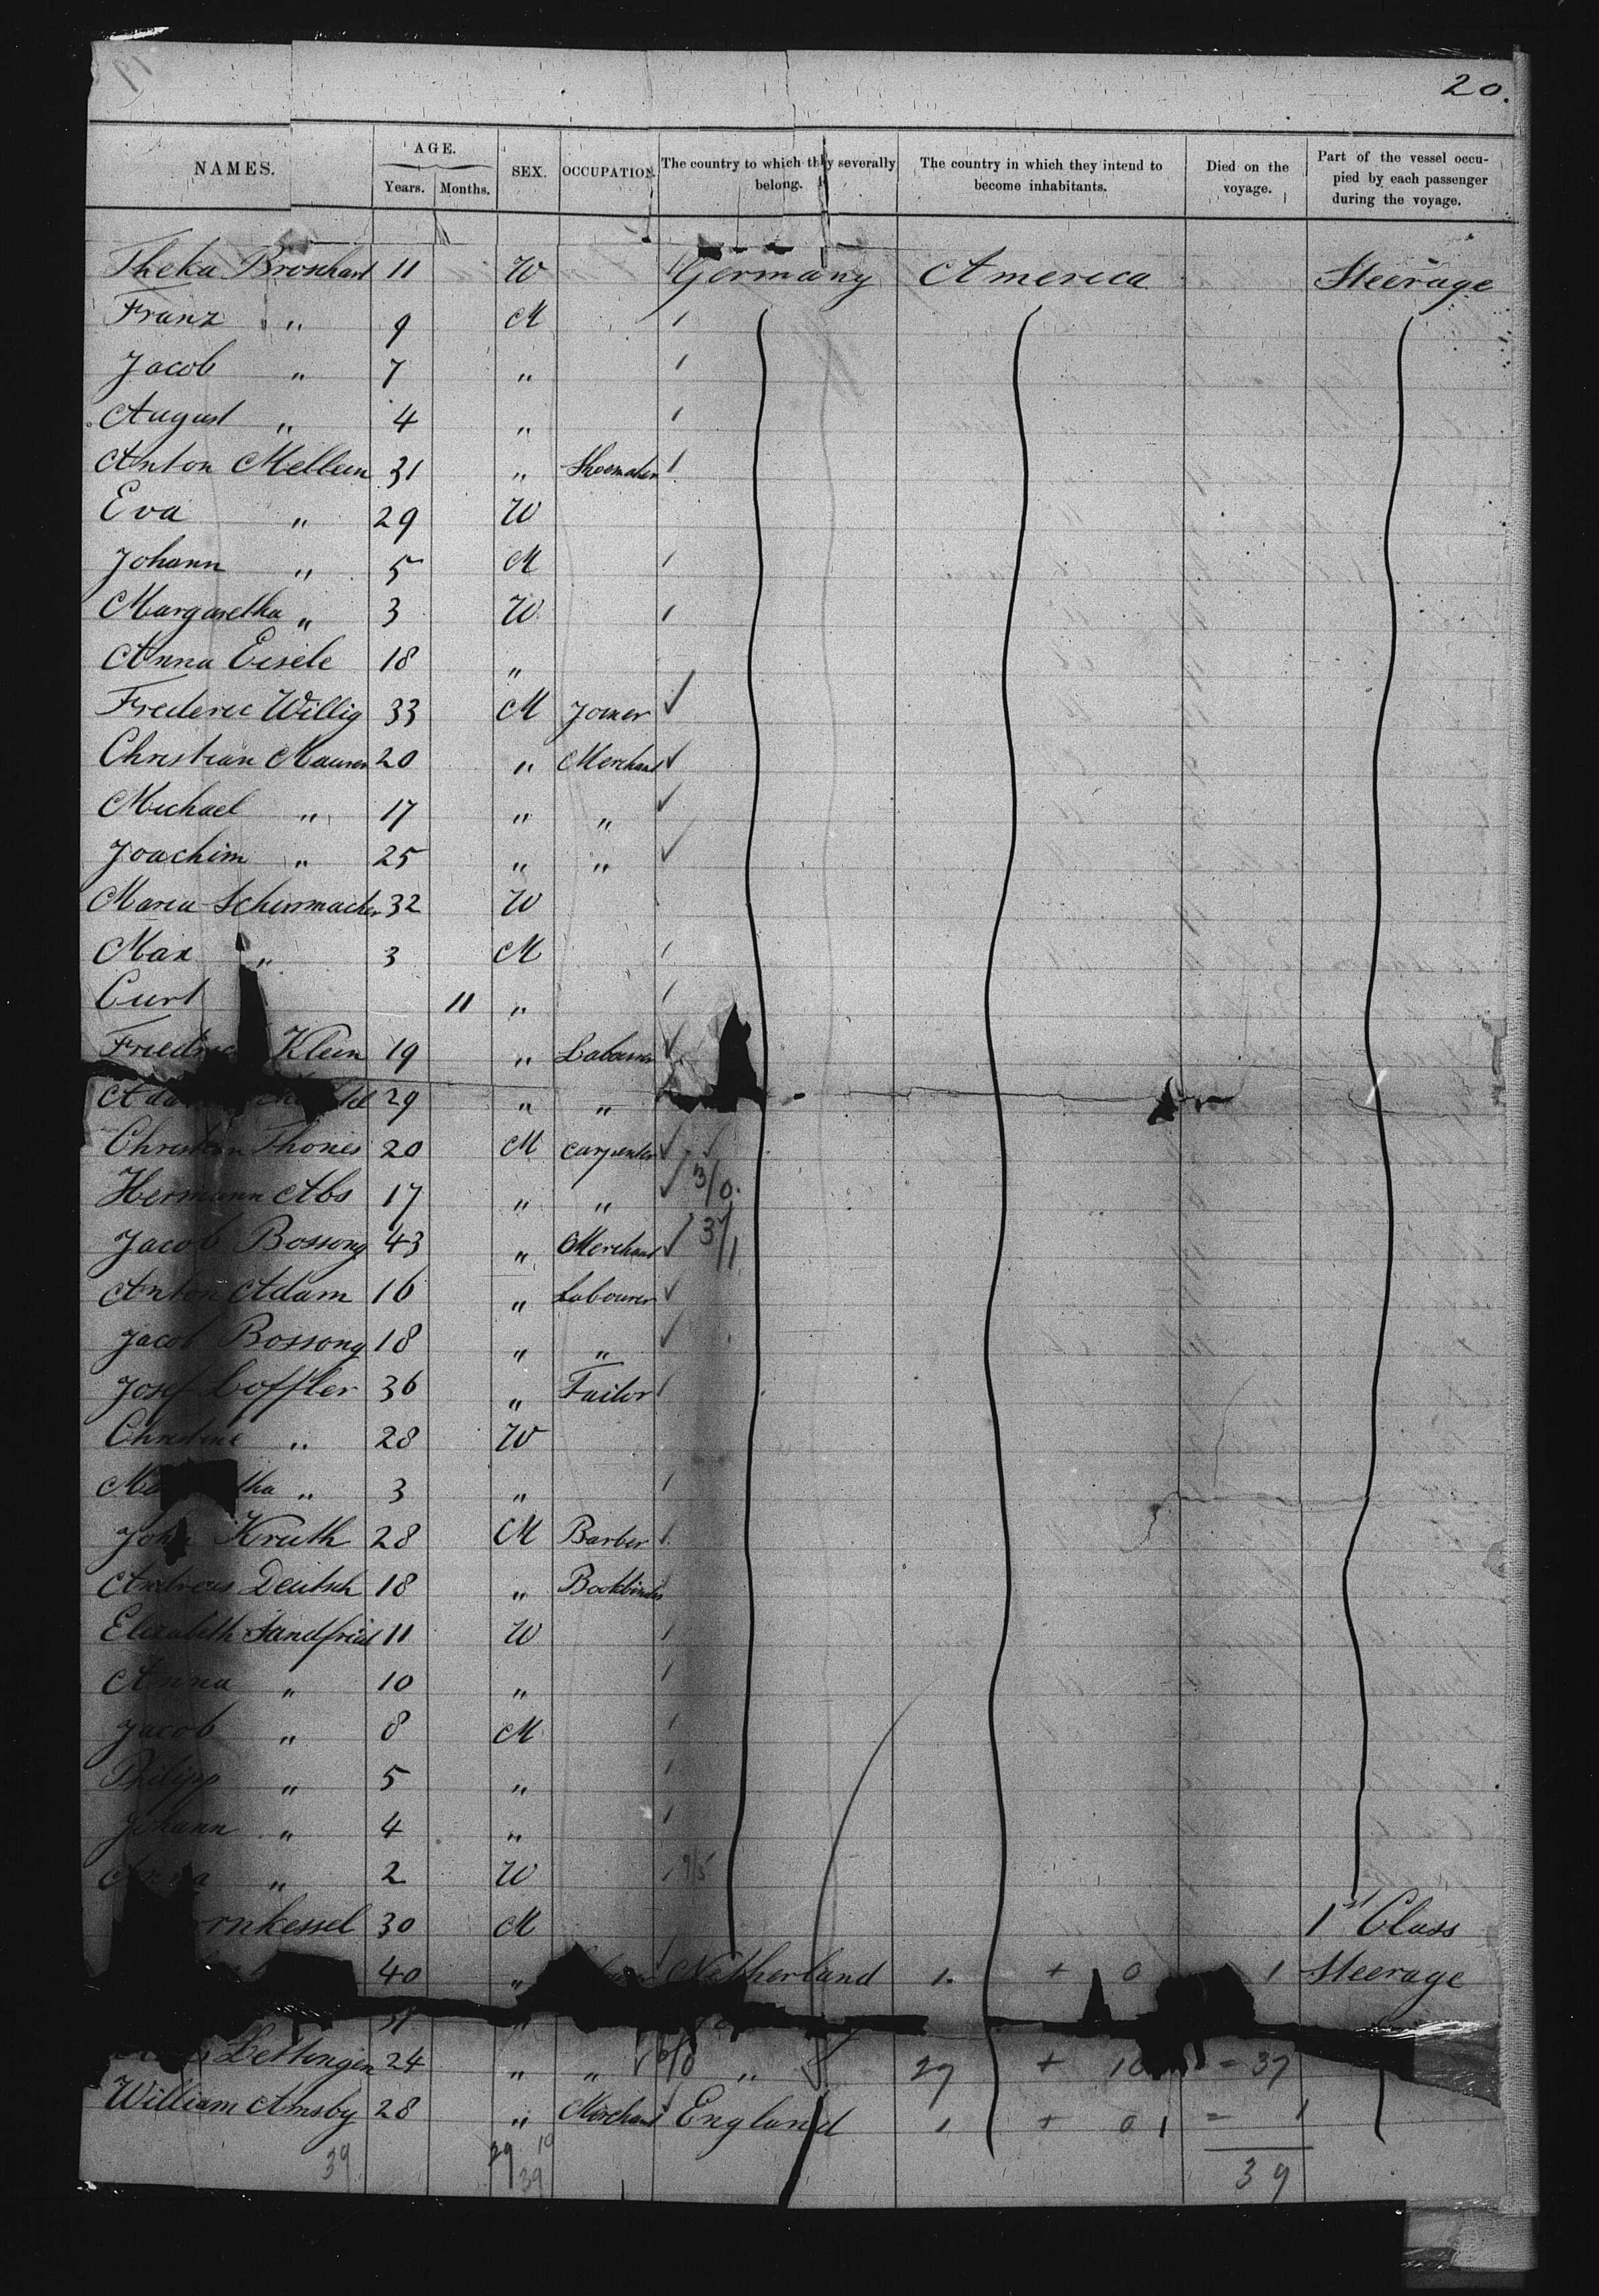 20.
NAMES. AGE. Years. Months. SEX. OCCUPATION. The country to which they severally belong. The country in which they intend to become inhabitants. Died on the voyage. Part of the vessel occupied by each passenger during the voyage.
Theka Broschart 11 W Germany America Steerage
Franz " 9 M
Jacob " 7 "
August " 4 "
Anton Mellein 31 " Shoemaker
Eva " 29 W
Johann " 5 M
Margaretha " 3 W
Anna Eisele 18 "
Frederic Willig 33 M Joiner
Christian Maurer 20 " Merchant
Michael " 17 " "
Joachim " 25 " "
Maria Schirmacher 32 W
Max " 3 M
Curt 11 "
Friedric Klein 19 " Labourer
29 " "
Christian Thones 20 M Carpenter
Hermann Abs 17 " " 3/0.
Jacob Bossong 43 " Merchant 3/1
Anton Adam 16 " Labourer
Jacob Bossong 18 " "
Josef Loffler 36 " Tailor
Christine " 28 W
Ma tha " 3 "
John Kruth 28 M Barber
Andreas Deutsch 18 " Bookbinder
Elizabeth Sandfried 11 W
Anna " 10 "
Jacob " 8 M
Philipp " 5 "
Johann " 4 "
Anna " 2 W 9/5
rnkessel 30 M 1st Class
40 " Netherland 1. + 0 1 Steerage
31 "
Lettingen 24 " " " 27 + 10 = 37
William Amsby 28 " Merchant England 1 + 0 1 = 1
39 29 10 39 39